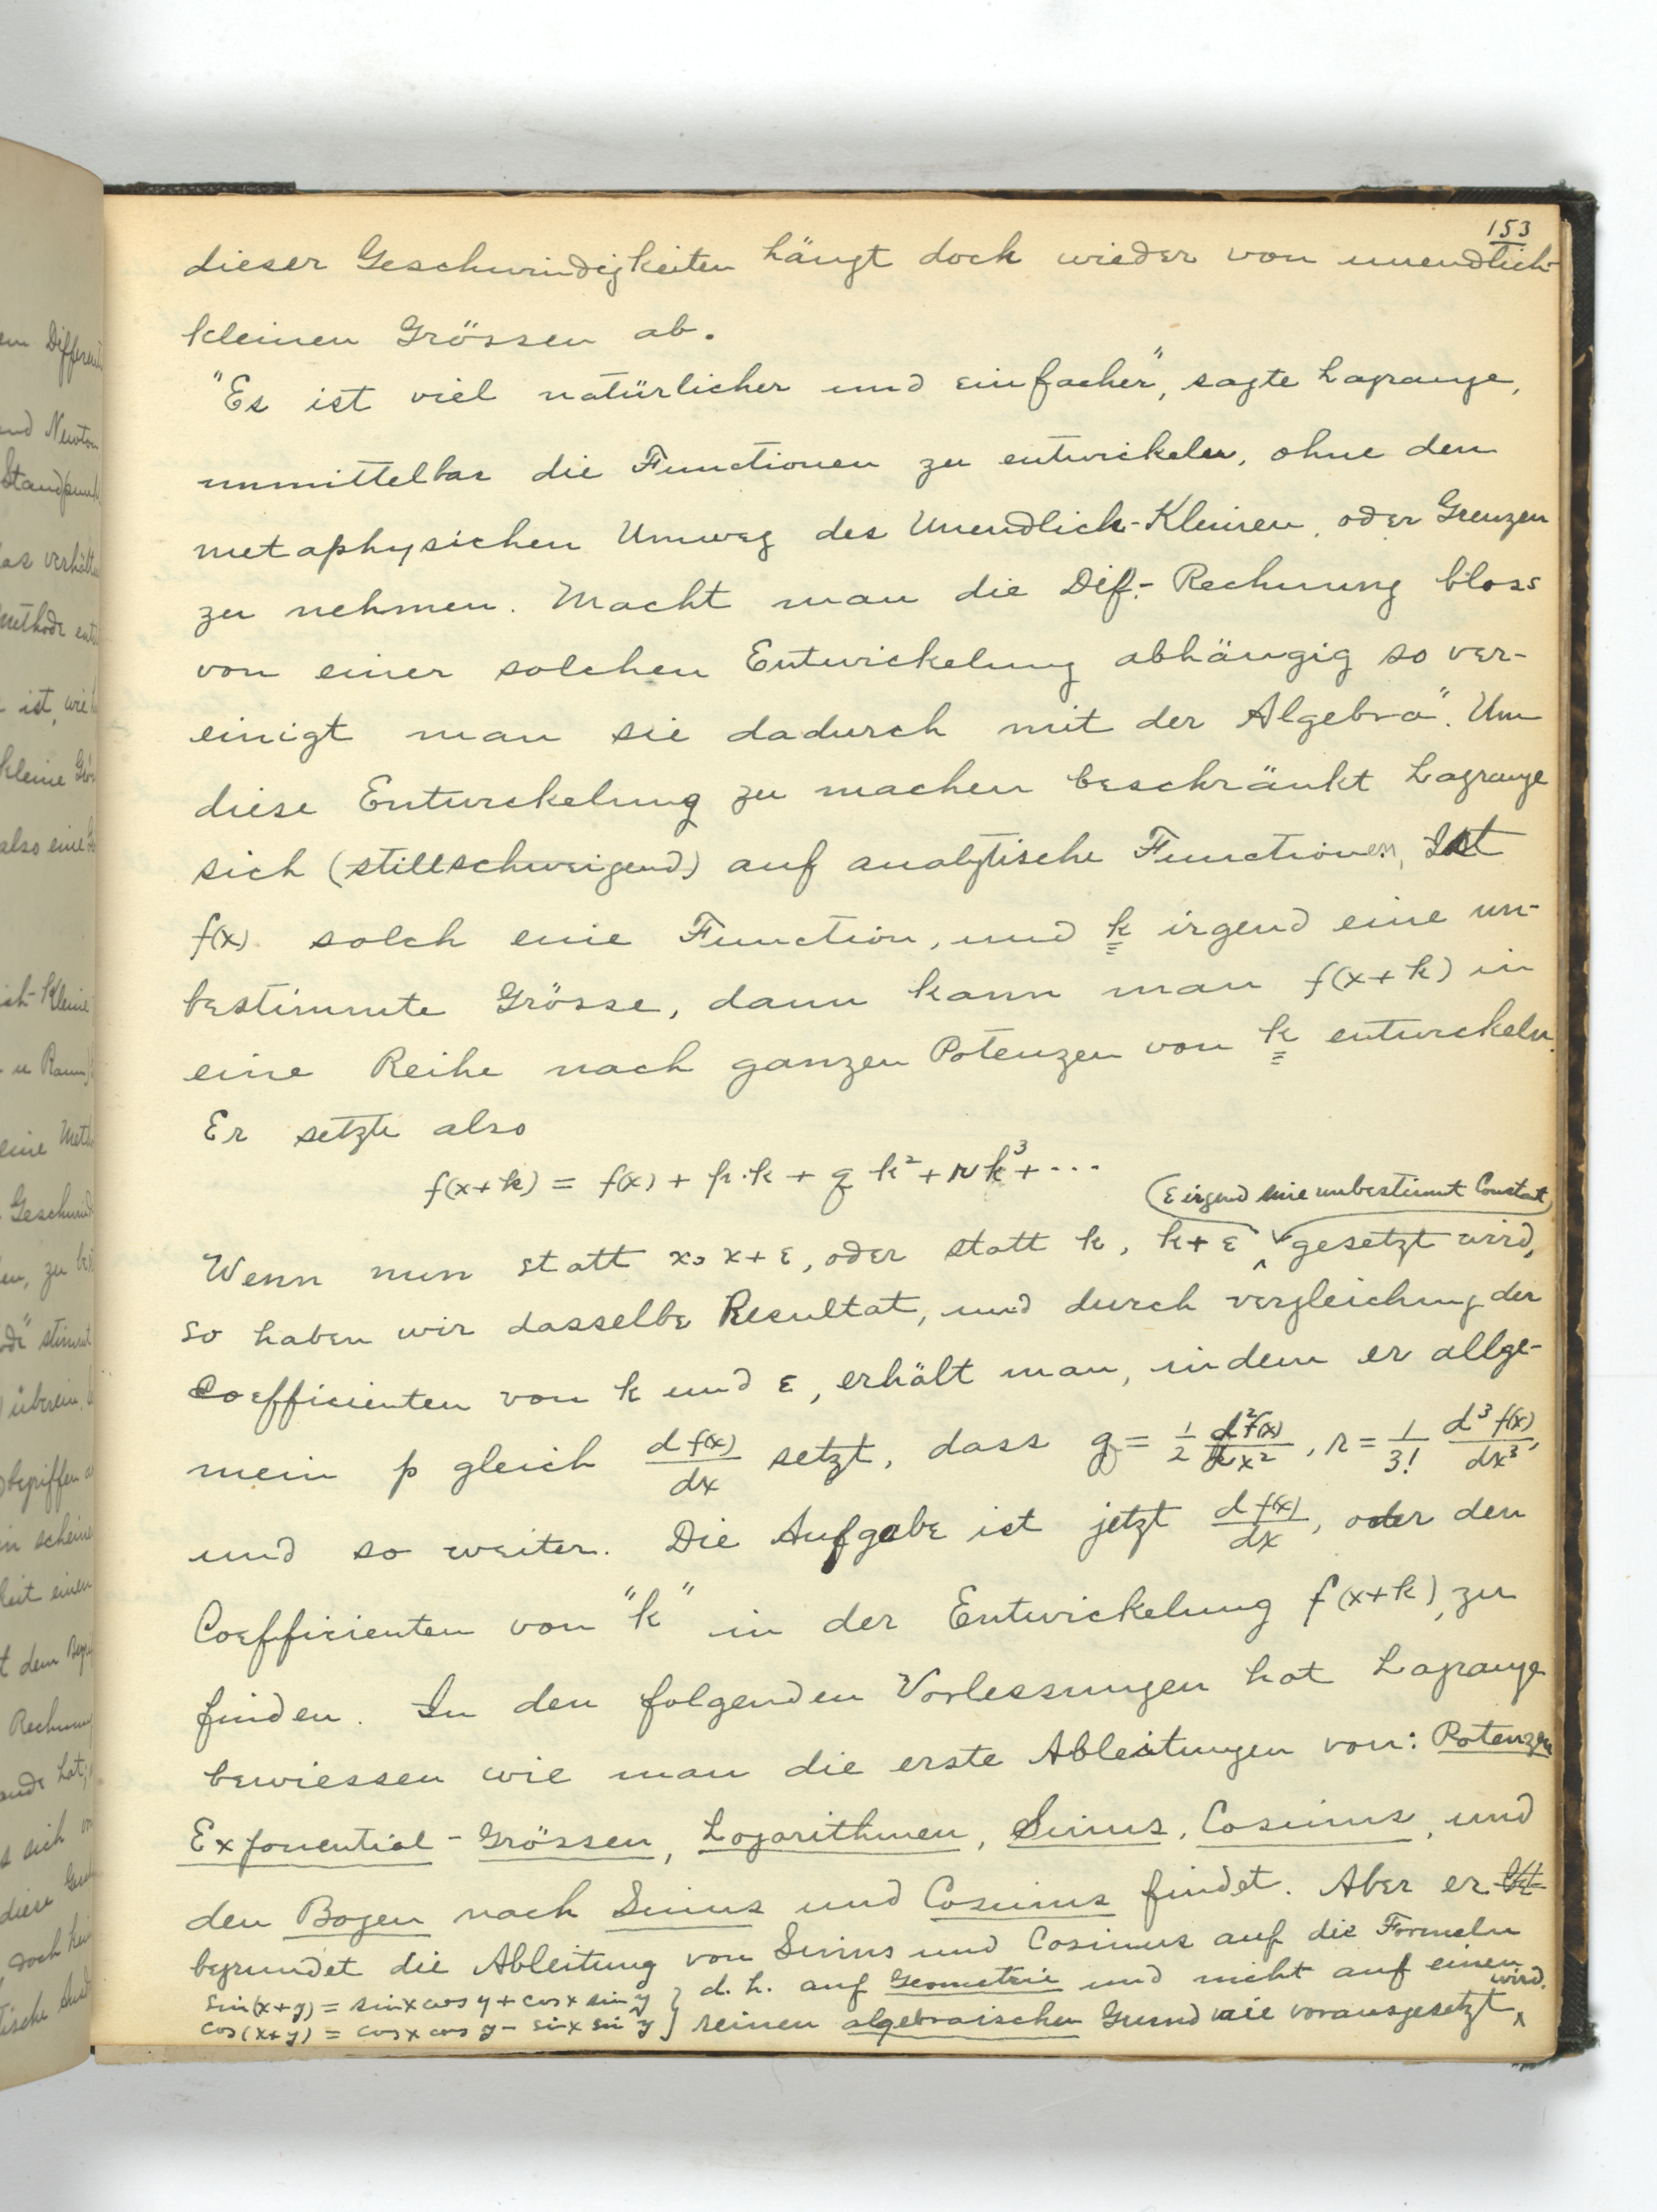 153
dieser Geschwindigkeiten hängt doch wieder von unendlich-
kleinen Grössen ab.
"Es ist viel natürlicher und einfacher", sagte Lagrange,
unmittelbar die Functionen zu entwickeln, ohne den
metaphysichen Umweg des Unendlich-Kleinen, oder Grenzen
zu nehmen. Macht man die Dif.- Rechnung bloss
von einer solchen Entwickelung abhängig so ver-
einigt man sie dadurch mit der Algebra". Um
diese Entwickelung zu machen beschränkt Lagrange
sich (stillschweigend) auf analytische Functionen, Ist
f(x) solch eine Function, und k irgend eine un-
bestimmte Grösse, dann kann man f(x+k) in
eine Reihe nach ganzen Potenzen von k entwickeln.
Er setzte also
f(x+k) = f(x) + p·k + q k² + r k³ + ···
(ε irgend eine unbestimmt Constat)
Wenn nun statt x, x+ε, oder statt k, k+ε gesetzt wird,
so haben wir dasselbe Resultat, und durch vergleichung der
Coefficienten von k und ε, erhält man, indem er allge-
mein p gleich df(x)/dx setzt, dass q = 1/2 d²f(x)/dx², r = 1/3! d³f(x)/dx³,
und so weiter. Die Aufgabe ist jetzt df(x)/dx, oder den
Coefficienten von "k" in der Entwickelung f(x+k), zu
finden. In den folgenden Vorlessungen hat Lagrange
bewiessen wie man die erste Ableitungen von: Potenzen
Exponential-Grössen, Logarithmen, Sinus, Cosinus, und
den Bogen nach Sinus und Cosinus findet. Aber er
begrundet die Ableitung von Sinus und Cosinus auf die Formeln
sin(x+y) = sin x cos y + cos x sin y } d. h. auf Geometrie und nicht auf einen
cos(x+y) = cos x cos y - sin x sin y } reinen algebraischen Grund wie vorausgesetzt wird.